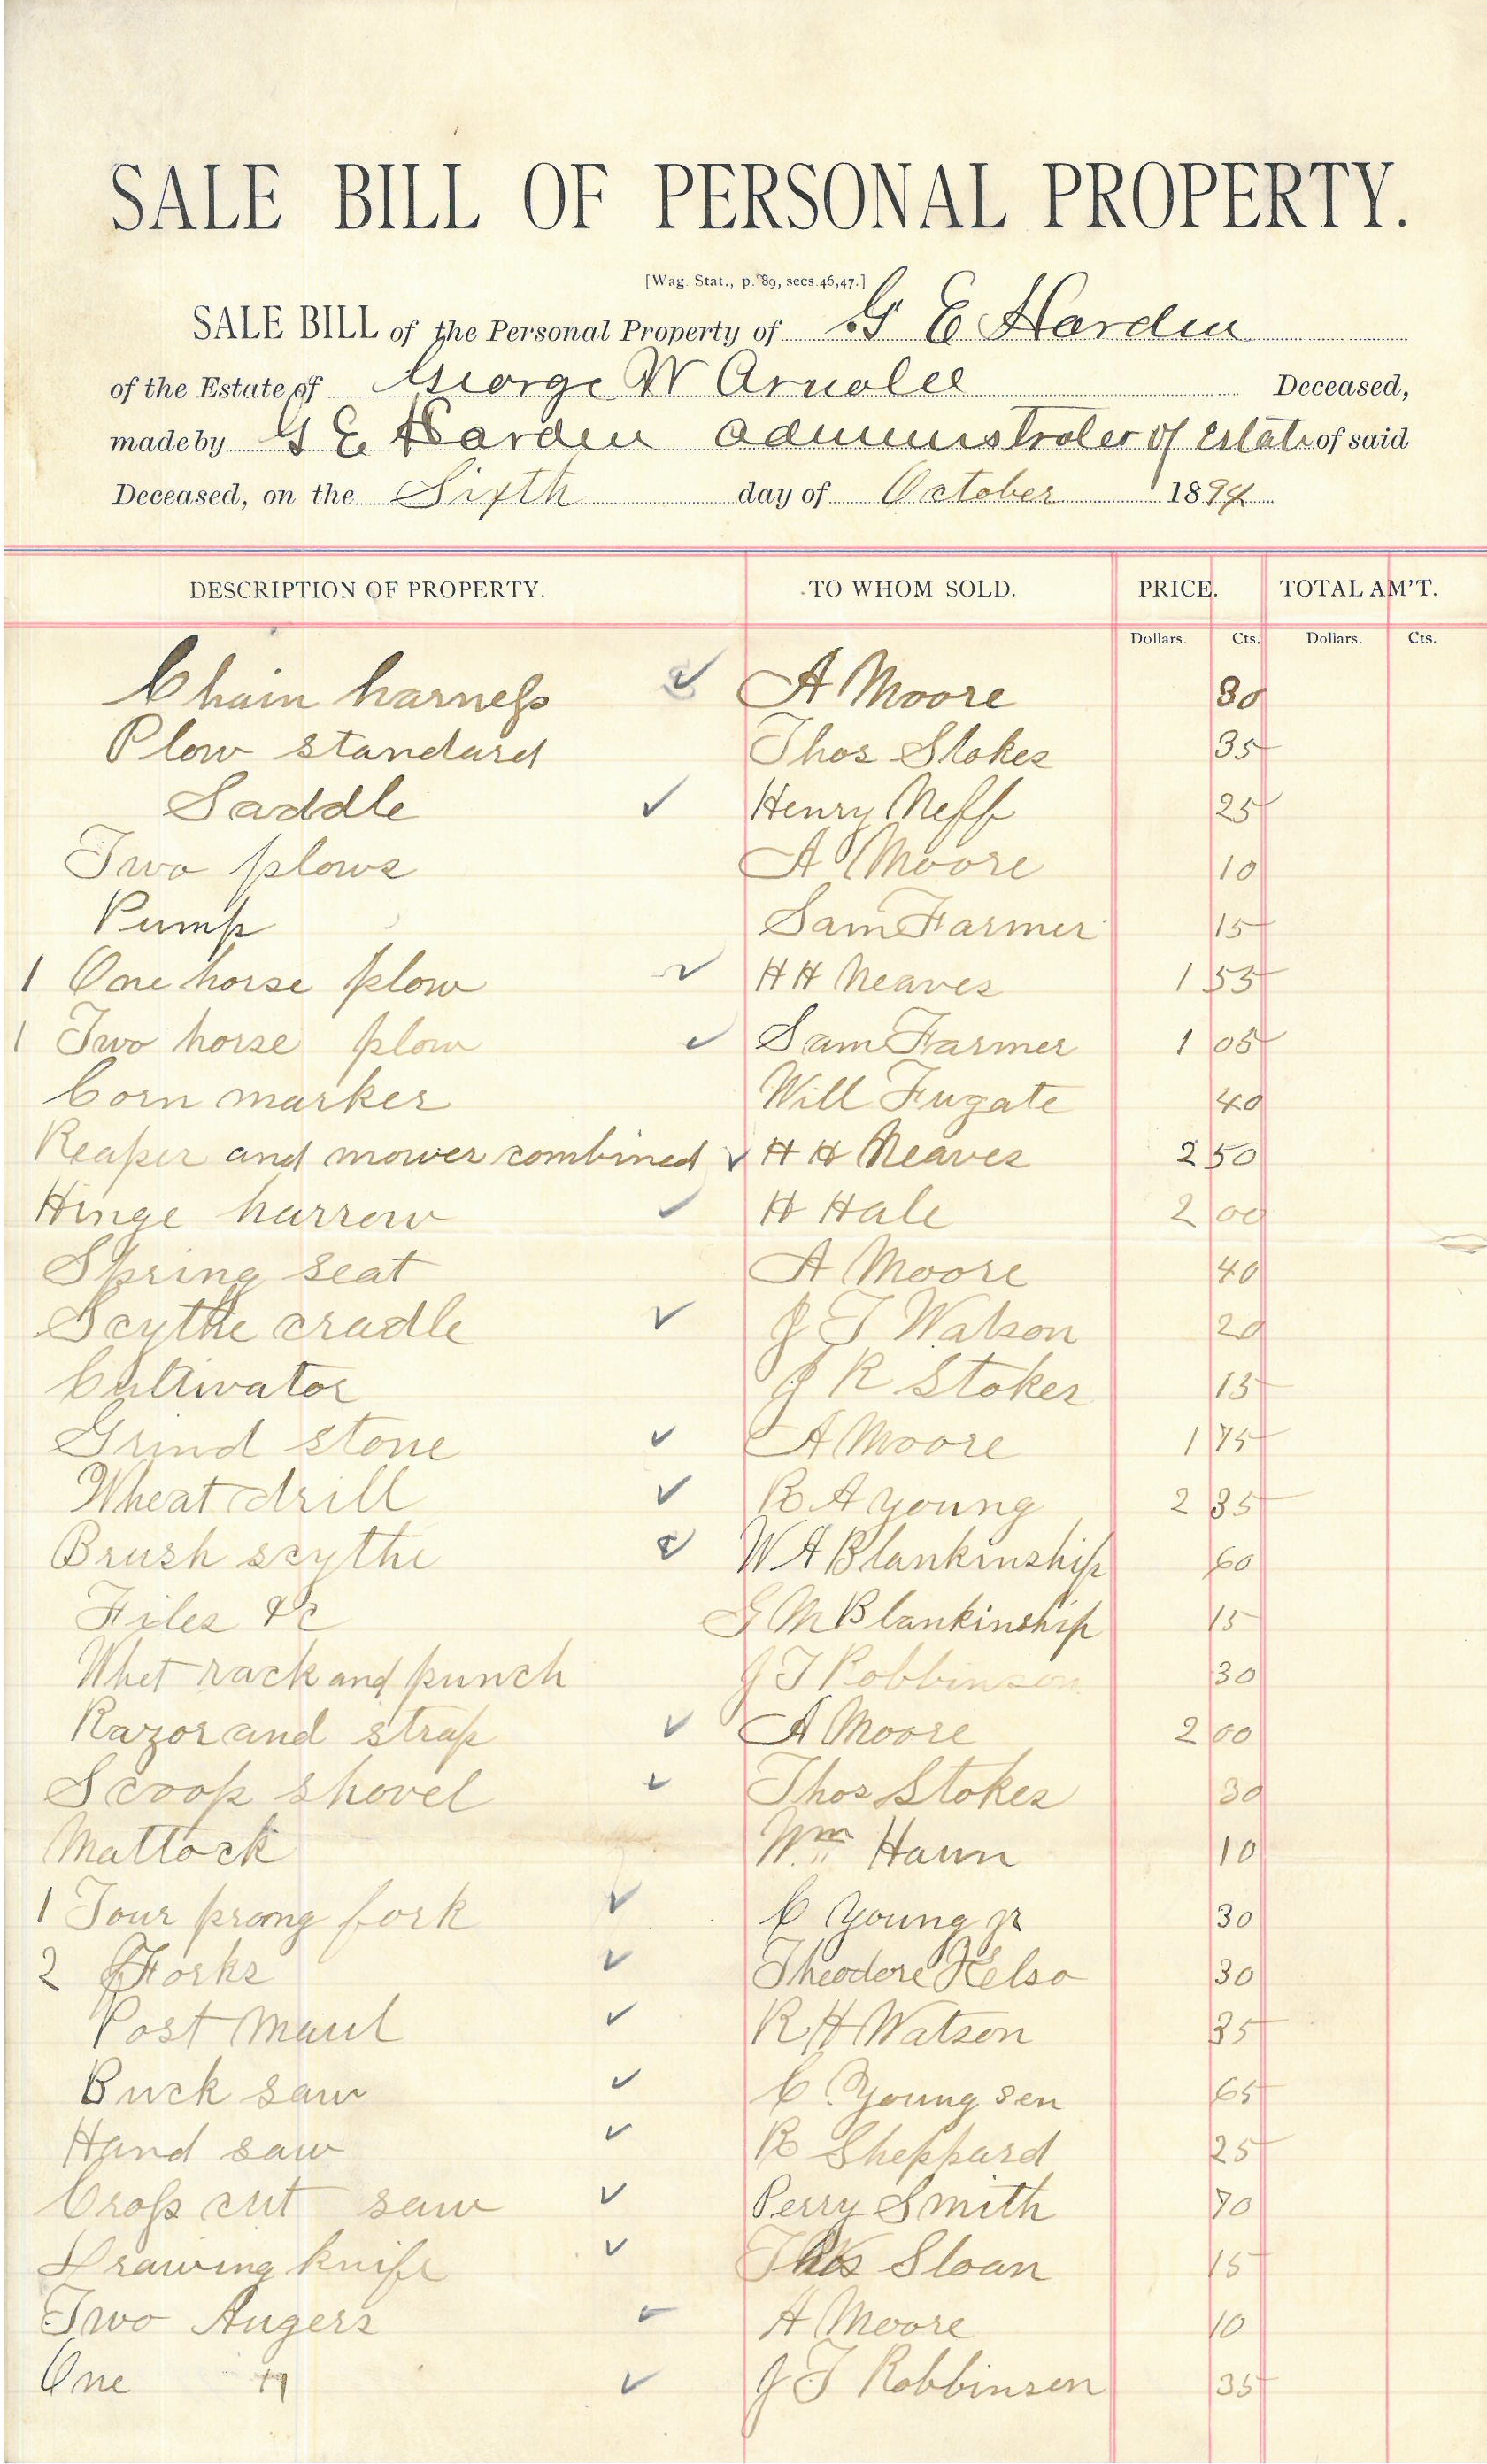 SALE BILL OF PERSONAL PROPERTY.
[Wag. Stat., p. 89, secs. 46, 47.]
SALE BILL of the Personal Property of G E Harden
of the Estate of George W Arnold Deceased,
made by G E Harden administrater of estate of said
Deceased, on the Sixth day of October 1894
DESCRIPTION OF PROPERTY. TO WHOM SOLD. PRICE. TOTAL AM'T.
Dollars. Cts. Dollars. Cts.
Chain harness ✓ A Moore 80
Plow standard Thos Stokes 35
Saddle ✓ Henry Neff 25
Two plows A Moore 10
Pump Sam Farmer 15
1 One horse plow ✓ H H Neaves 1 55
1 Two horse plow ✓ Sam Farmer 1 05
Corn marker Will Fugate 40
Reaper and mower combined ✓ H H Neaves 2 50
Hinge harrow ✓ H Hale 2 00
Spring seat A Moore 40
Scythe cradle ✓ J T Watson 20
Cultivator J R Stokes 15
Grind stone ✓ A Moore 1 75
Wheat drill ✓ R A Young 2 35
Brush scythe ✓ W A Blankinship 60
Files &c G M Blankinship 15
Whet rack and punch J T Robbinson 30
Razor and strap ✓ A Moore 2 00
Scoop shovel ✓ Thos Stokes 30
Mattock Wm Haun 10
1 Four prong fork ✓ C Young jr 30
2 Forks ✓ Theodore Kelso 30
Post Maul ✓ R H Watson 35
Buck saw ✓ C. Young sen 65
Hand saw ✓ R Sheppard 25
Cross cut saw ✓ Perry Smith 70
Drawing knife ✓ Thos Sloan 15
Two Augers ✓ A Moore 10
One " ✓ J T Robbinson 35